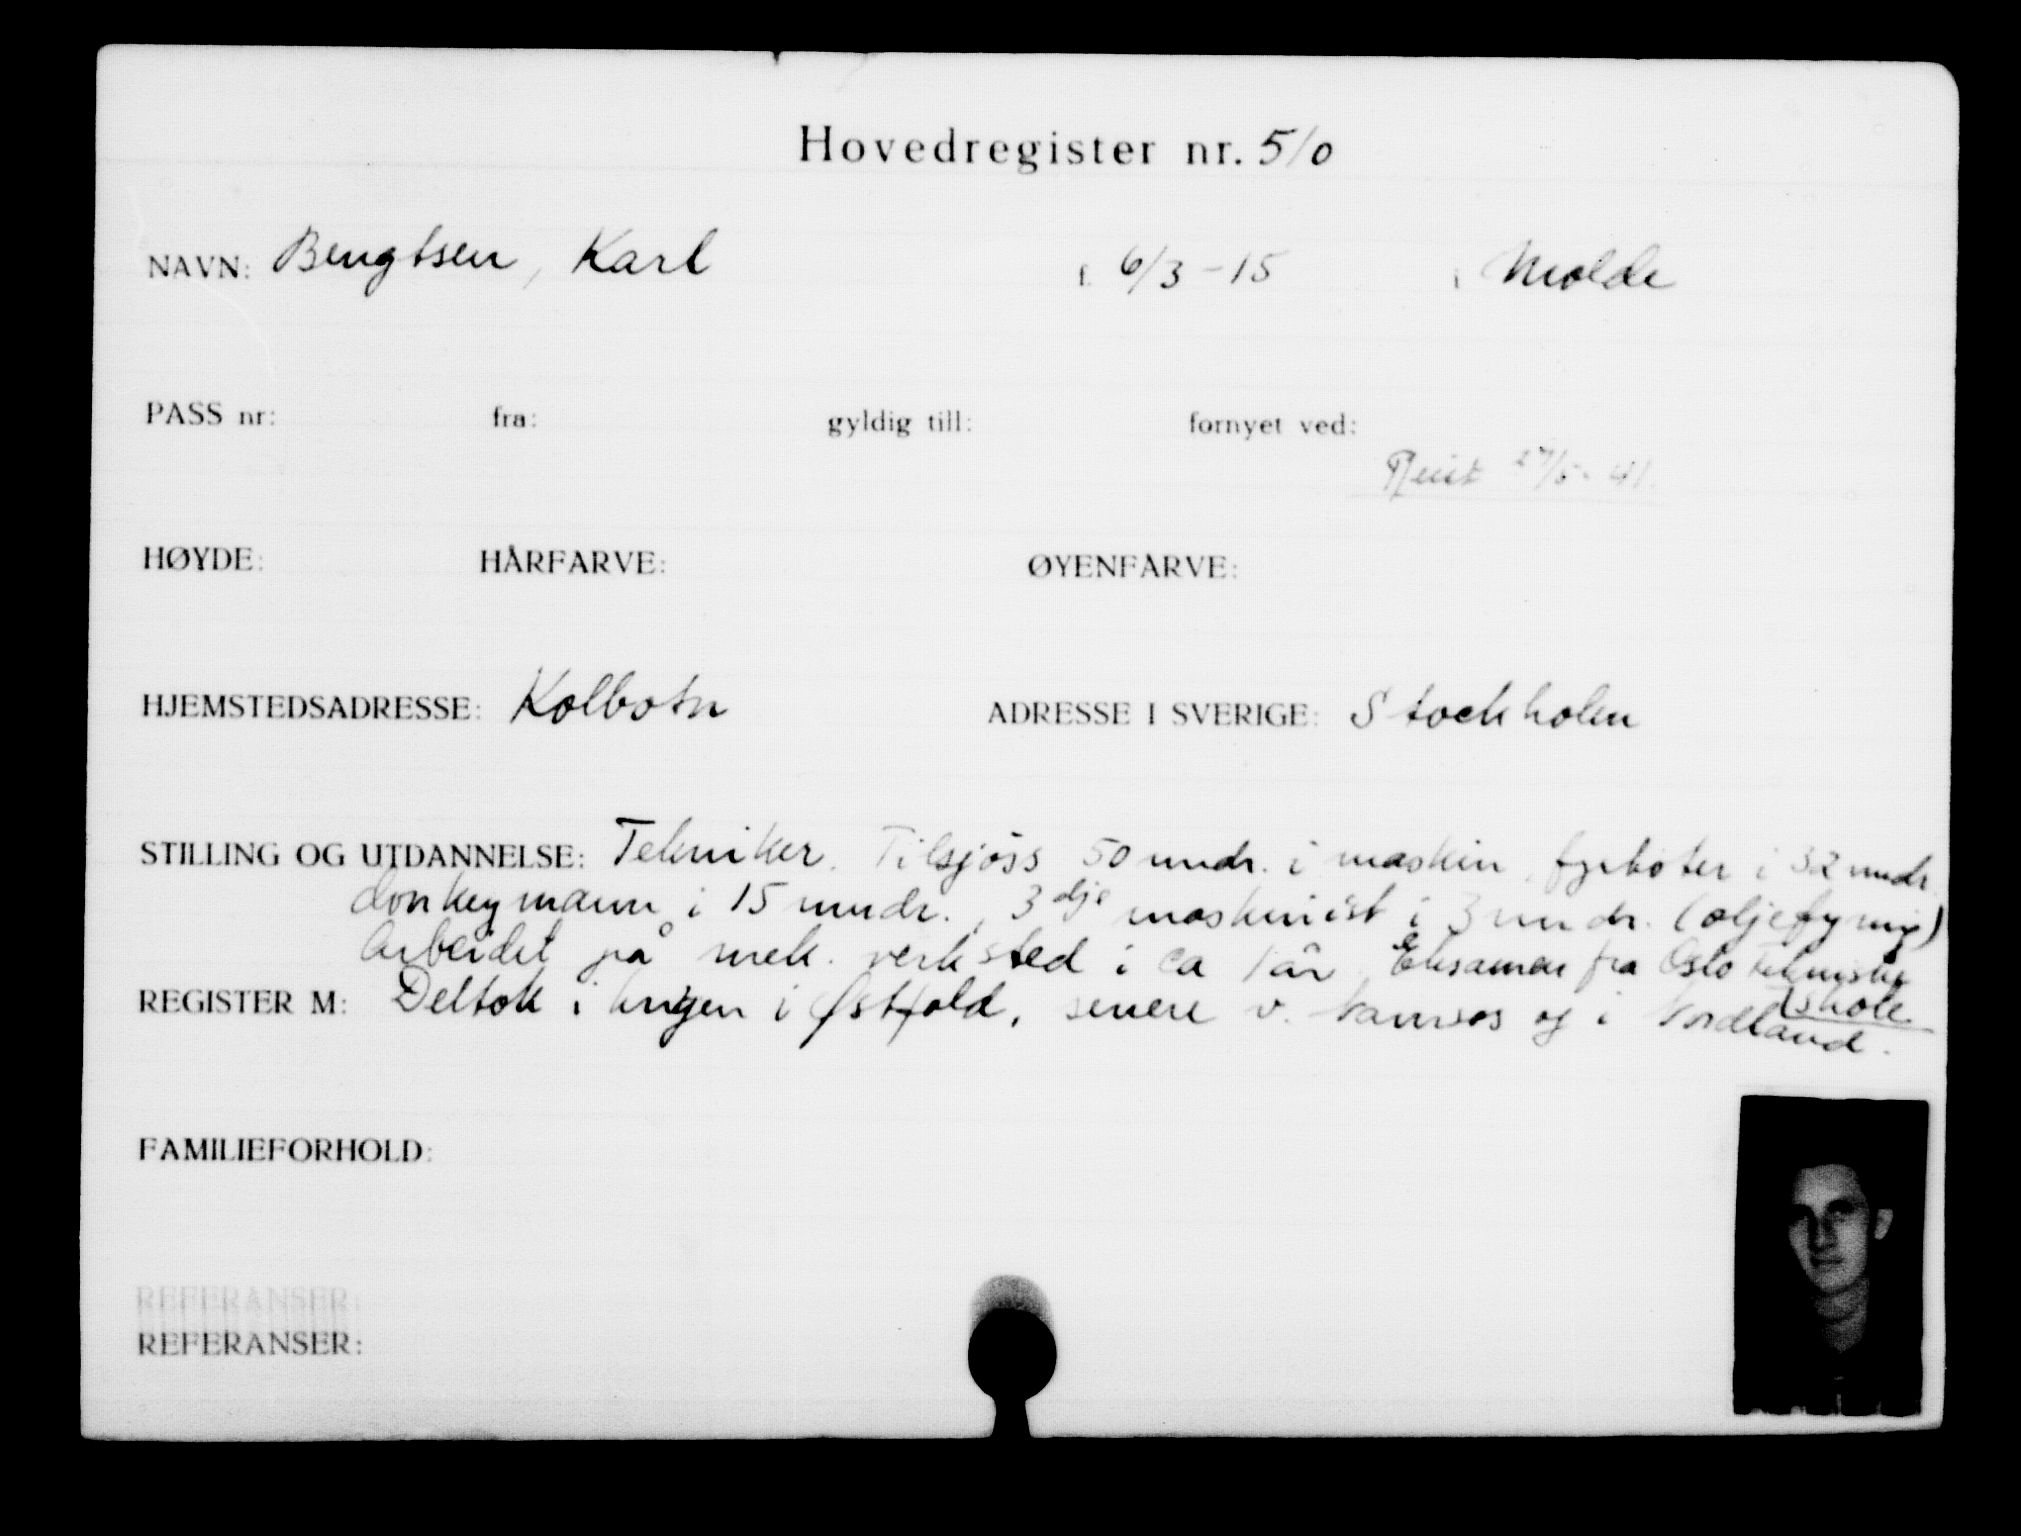 Hovedregister nr. 510
NAVN: Bengtsen, Karl f. 6/3 - 15 i Molde
PASS nr: fra: gyldig till: fornyet ved:
Reist 27/5 - 41.
HØYDE: HÅRFARVE: ØYENFARVE:
HJEMSTEDSADRESSE: Kolbotn ADRESSE I SVERIGE: Stockholm
STILLING OG UTDANNELSE: Tekniker. Tilsjøss 50 mndr. i maskin, fyrbøter i 32 mndr.
donkeymann i 15 mndr., 3dje maskinist i 3 mndr. (oljefyring)
Arbeidet på mek. verksted i ca 1 år. Eksamen fra Oslo tekniske
skole
REGISTER M: Deltok i krigen i Østfold, senere v. Namsos og i Nordland.
FAMILIEFORHOLD:
REFERANSER:
REFERANSER: